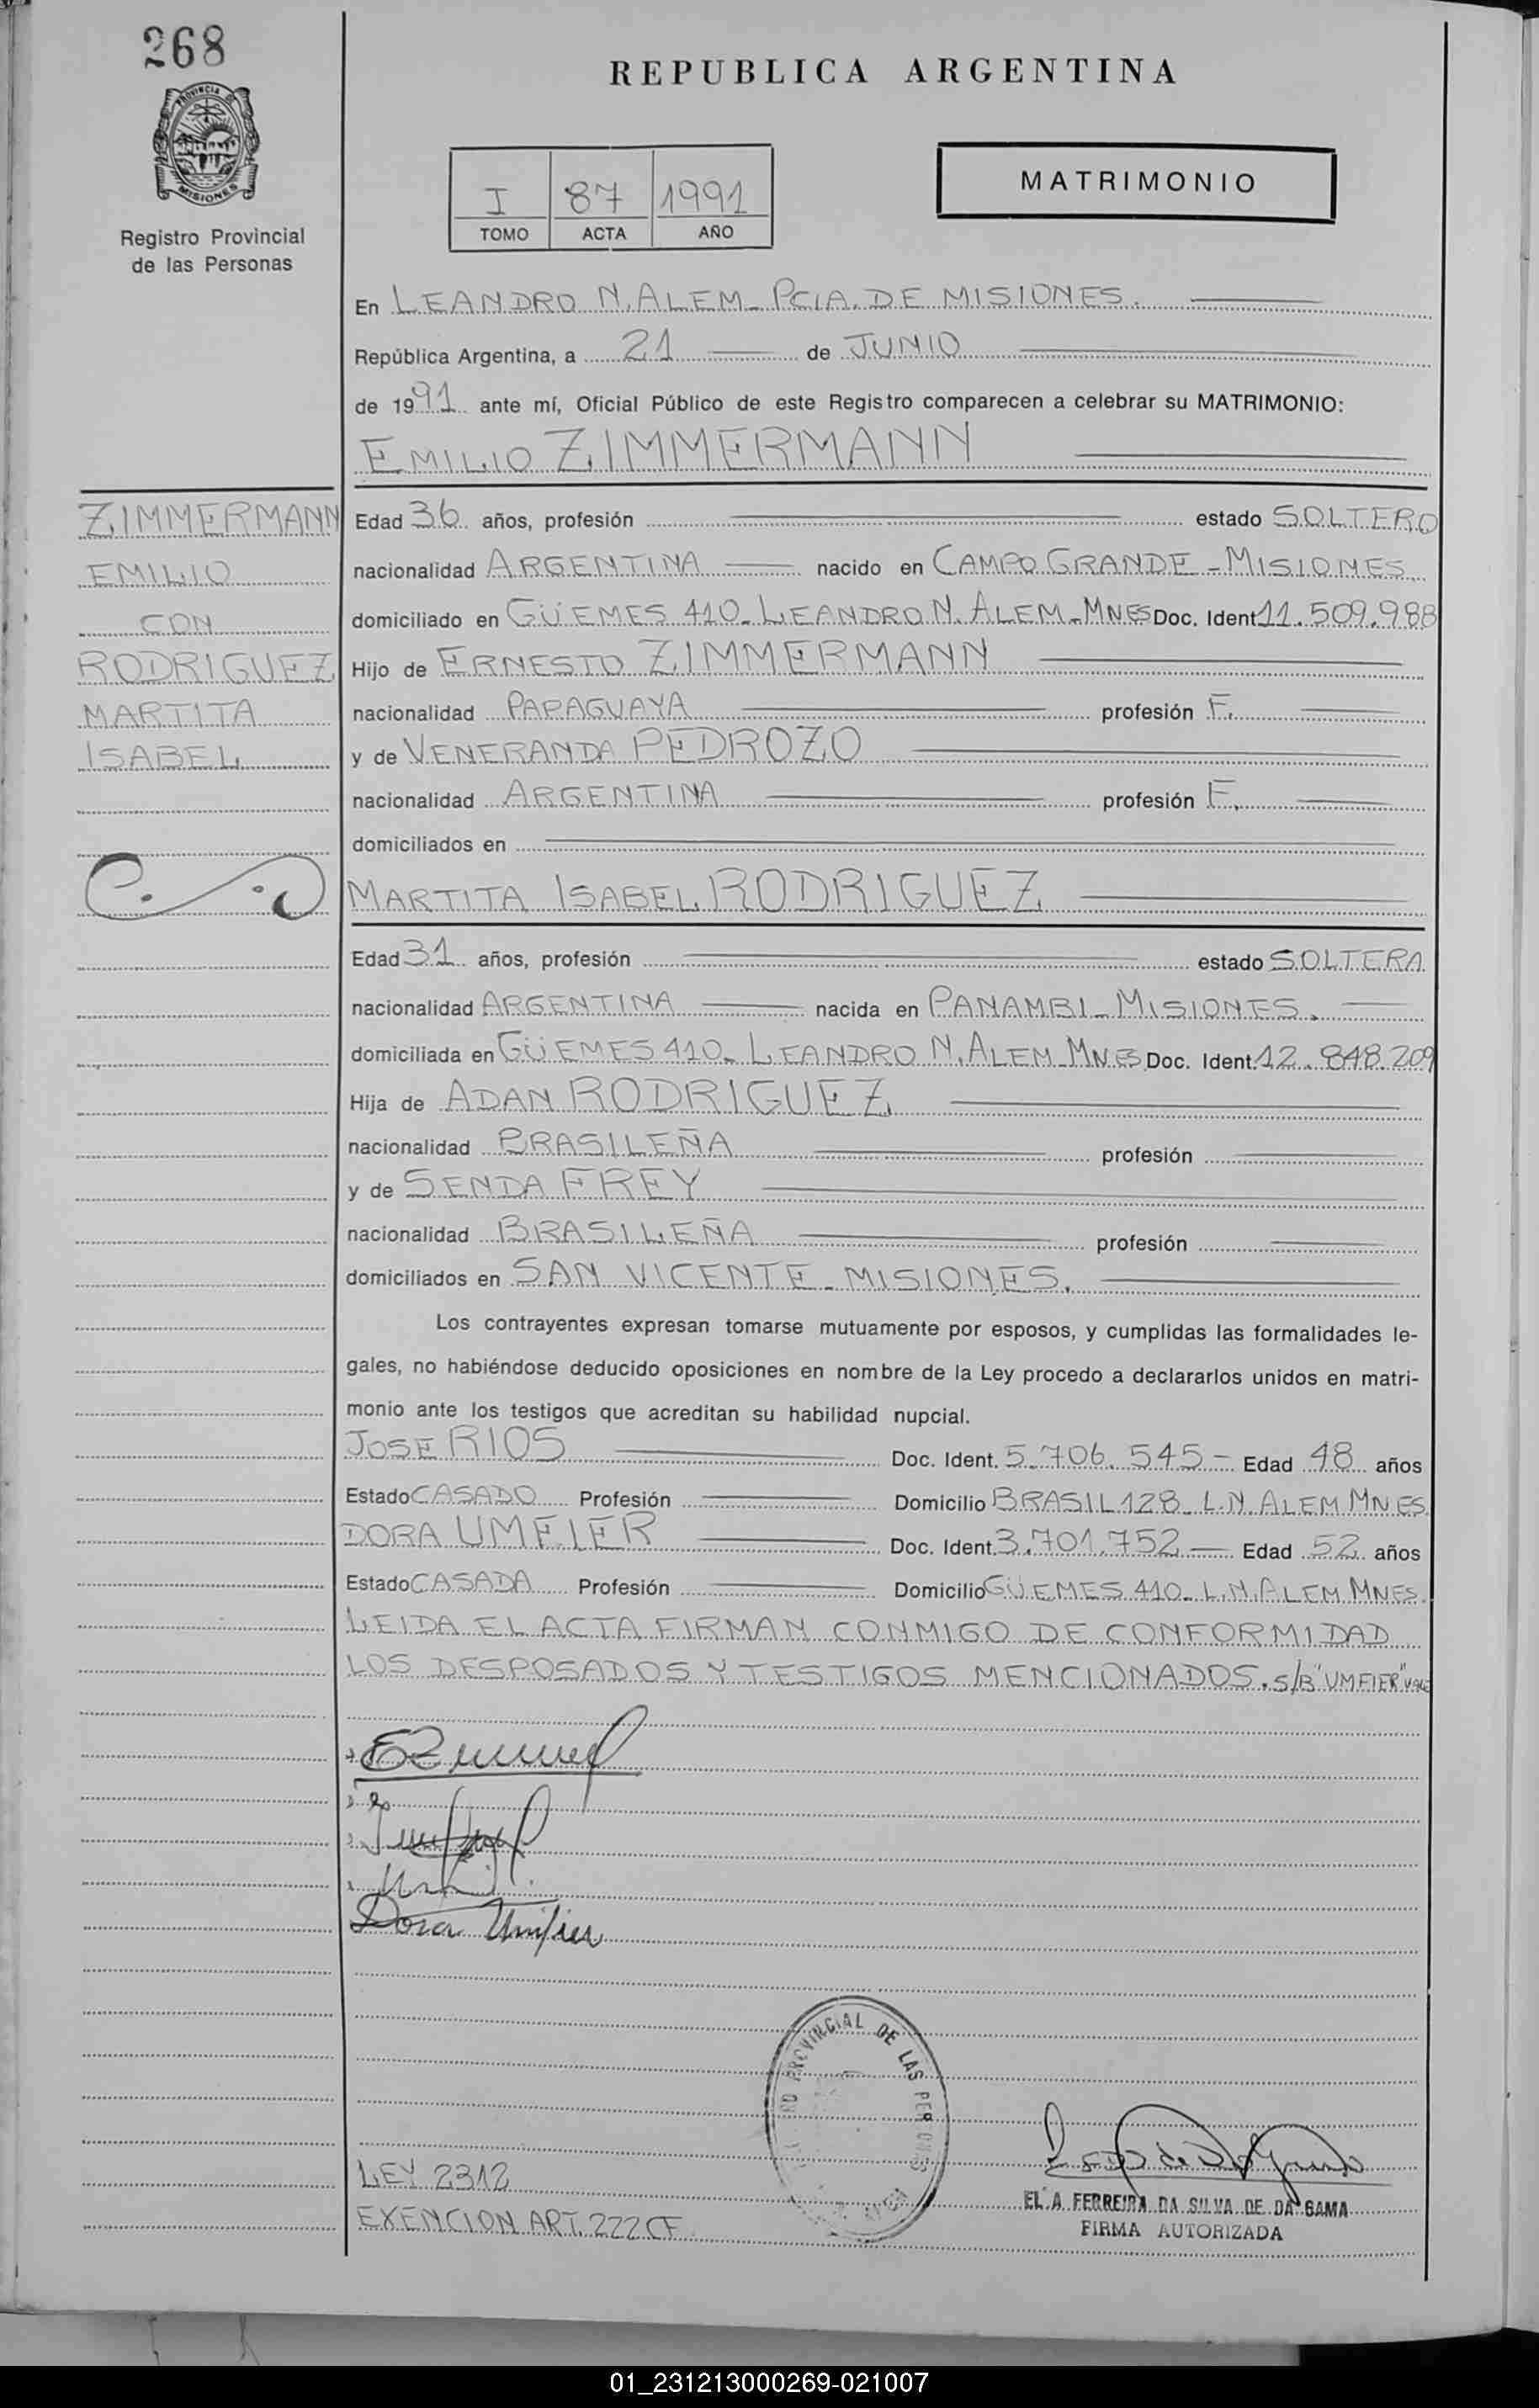 268
PROVINCIA DE
MISIONES
Registro Provincial
de las Personas
REPUBLICA ARGENTINA
I 87 1991
TOMO ACTA AÑO
MATRIMONIO
En LEANDRO N. ALEM - PCIA. DE MISIONES.
República Argentina, a 21 de JUNIO
de 1991 ante mí, Oficial Público de este Registro comparecen a celebrar su MATRIMONIO:
EMILIO ZIMMERMANN
ZIMMERMANN
EMILIO
CON
RODRIGUEZ
MARTITA
ISABEL
Edad 36 años, profesión estado SOLTERO
nacionalidad ARGENTINA nacido en CAMPO GRANDE - MISIONES
domiciliado en GÜEMES 410 - LEANDRO N. ALEM - MNES Doc. Ident 11.509.988
Hijo de ERNESTO ZIMMERMANN
nacionalidad PARAGUAYA profesión F.
y de VENERANDA PEDROZO
nacionalidad ARGENTINA profesión F.
domiciliados en
MARTITA ISABEL RODRIGUEZ
Edad 31 años, profesión estado SOLTERA
nacionalidad ARGENTINA nacida en PANAMBI - MISIONES.
domiciliada en GÜEMES 410 - LEANDRO N. ALEM - MNES Doc. Ident. 12.848.209
Hija de ADAN RODRIGUEZ
nacionalidad BRASILEÑA profesión
y de SENDA FREY
nacionalidad BRASILEÑA profesión
domiciliados en SAN VICENTE - MISIONES.
Los contrayentes expresan tomarse mutuamente por esposos, y cumplidas las formalidades le-
gales, no habiéndose deducido oposiciones en nombre de la Ley procedo a declararlos unidos en matri-
monio ante los testigos que acreditan su habilidad nupcial.
JOSE RIOS Doc. Ident. 5.706.545 - Edad 48 años
Estado CASADO Profesión Domicilio BRASIL 128 - L.N. ALEM MNES
DORA UMFIER Doc. Ident. 3.701.752 - Edad 52 años
Estado CASADA Profesión Domicilio GÜEMES 410 - L.N. ALEM MNES.
LEIDA EL ACTA FIRMAN CONMIGO DE CONFORMIDAD
LOS DESPOSADOS Y TESTIGOS MENCIONADOS. S/B "UMFIER" VALE
Dora Umfier
PROVINCIAL DE LAS
LEY 2312
EXENCION ART. 222 CF
FERREIRA DA SILVA DE DA GAMA
FIRMA AUTORIZADA
01_231213000269-021007